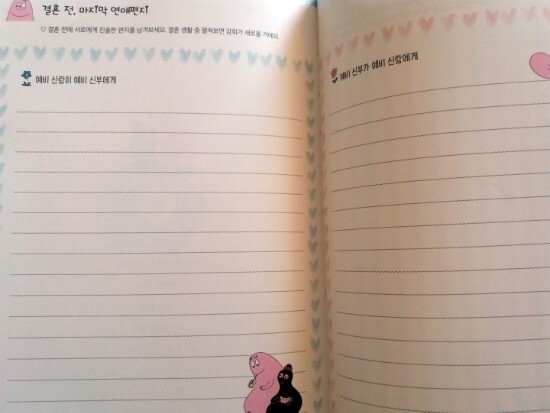 결혼 전, 마지막 연애편지
♡ 결혼 전에 서로에게 진솔한 편지를 남겨보세요. 결혼 생활 중 펼쳐보면 감회가 새로울 거예요.
예비 신랑이 예비 신부에게
예비 신부가 예비 신랑에게